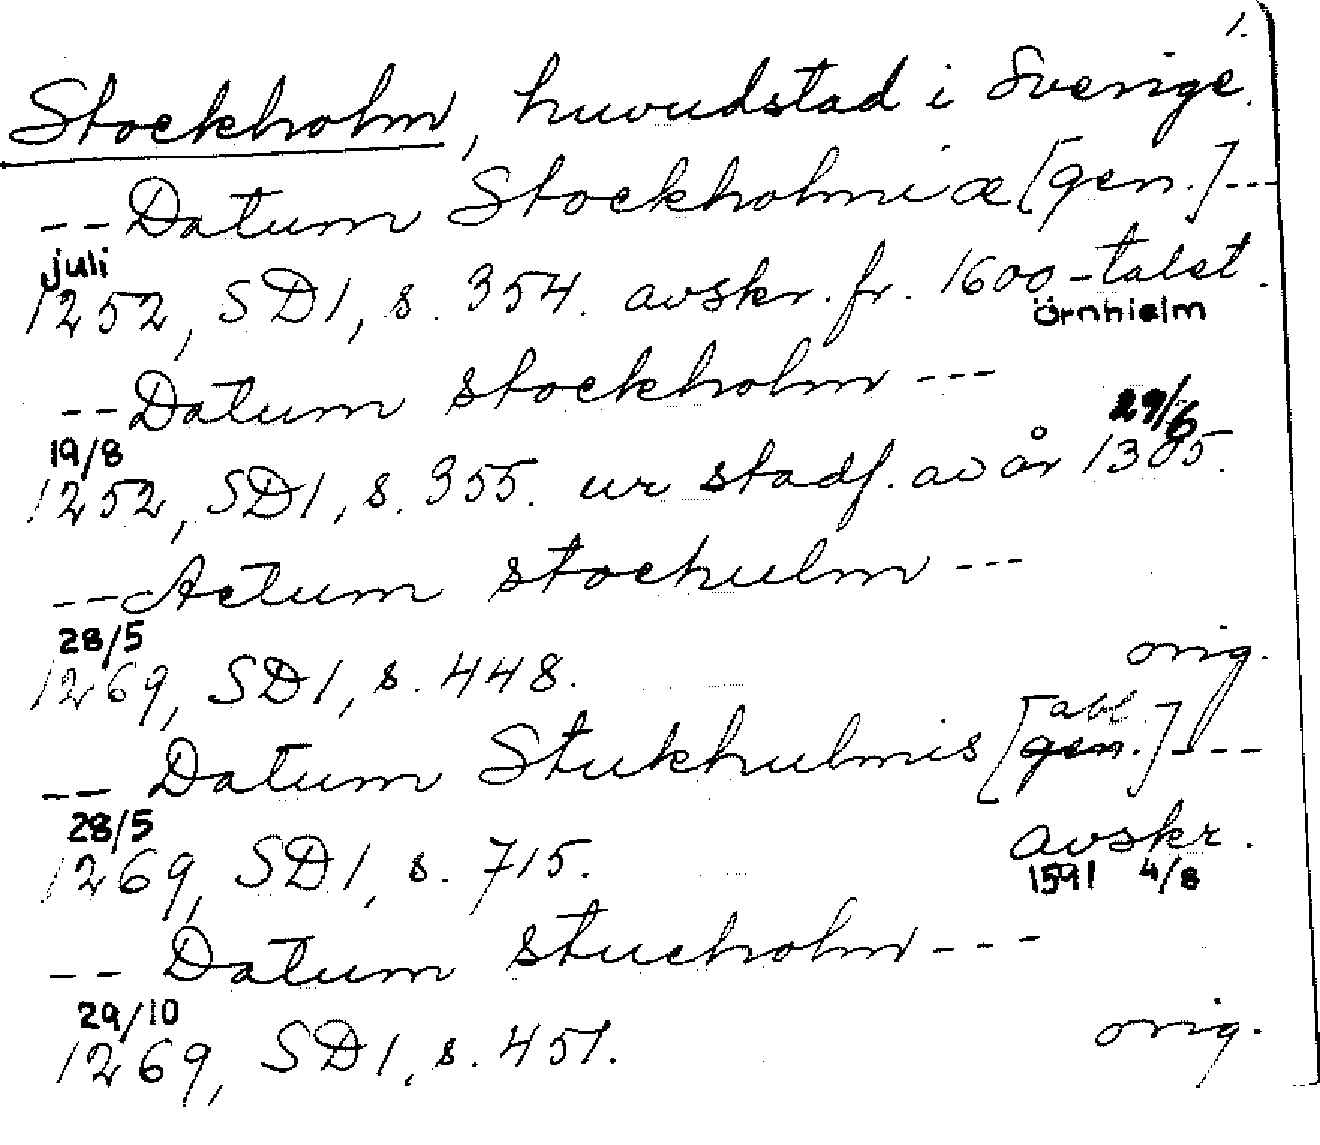 1.
Stockholm, huvudstad i Sverige.
-- Datum Stockholmiæ [gen.] ---
juli
1252, SD1, s. 354. avskr. fr. 1600-talet.
Örnhielm
-- Datum stockholm ---
19/8 29/6
1252, SD1, s. 355. ur stadf. av år 1305.
-- Actum stochulm ---
28/5
1269, SD1, s. 448. orig.
abl.
-- Datum Stukhulmis [gen.] ---
28/5
1269, SD1, s. 715. avskr.
1591 4/8
-- Datum stucholm ---
29/10
1269, SD1, s. 451. orig.